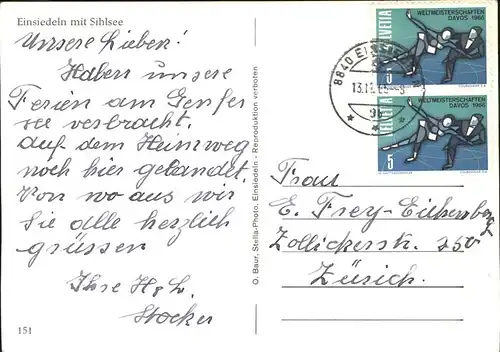 Einsiedeln mit Sihlsee
Unsere Lieben!
Haben unsere
Ferien am Genfer
see verbracht.
auf dem Heimweg
noch hier gelandet.
Von wo aus wir
Sie alle herzlich
grüssen
Ihre H. & L.
Stocker
151
O. Baur, Stella-Photo, Einsiedeln - Reproduktion verboten
8840 EINSIEDELN
13.12.65-9
HELVETIA
WELTMEISTERSCHAFTEN
DAVOS 1966
5
HELVETIA
WELTMEISTERSCHAFTEN
DAVOS 1966
5
COURVOISIER S.A.
Frau
E. Frey-Eichenberger
Zollickerstr. 250
Zürich.